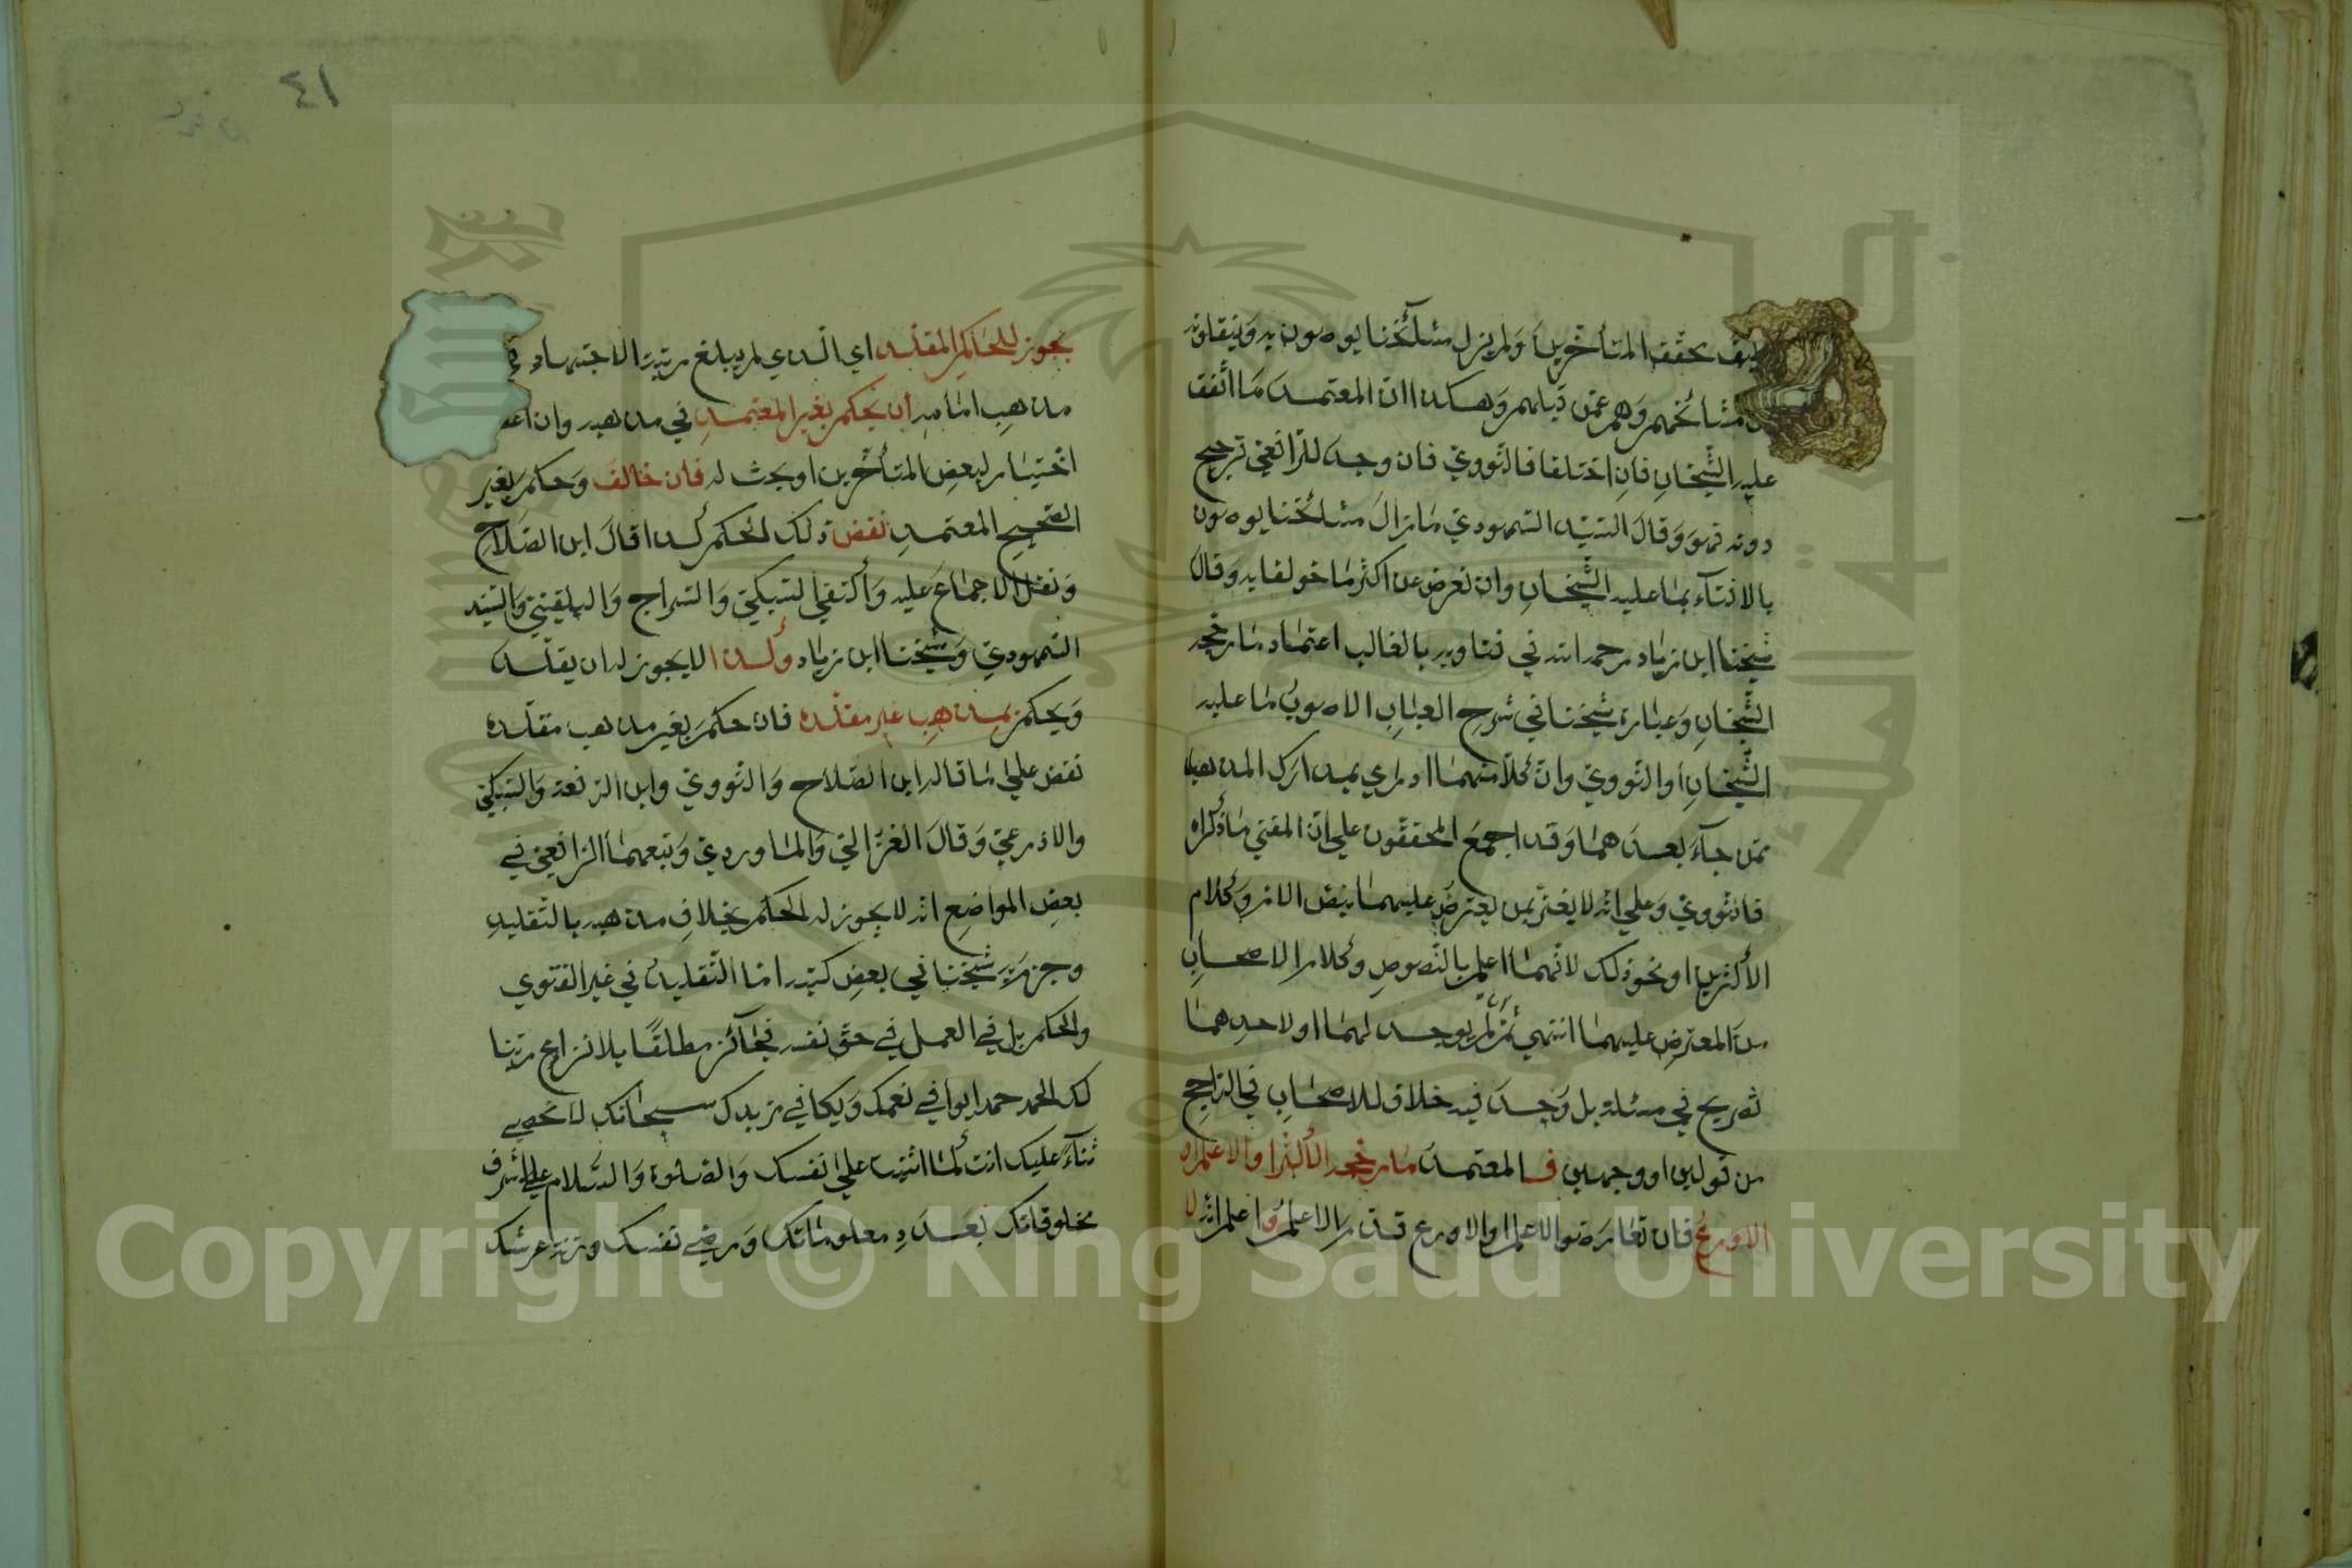 كيف بحقق المتأخرين ولم يزل مشائخنا يوصون به وينقلونه
مشائخهم وهم عمن قبلهم وهكذا ان المعتمد ما اتفق
عليه الشيخان فان اختلفا فالنووي فان وجد للرافعي ترجيح
دونه فهو وقال السيد السمهودي ما زال مشائخنا يوصون
بالافتآء بما عليه الشيخان وان نعرض عن اكثر ما خولفا به وقال
شيخنا ابن زياد رحمه الله في فتاويه بالغالب اعتماد ما رجحه
الشيخان وعبارة شيخنا في شرح العباب الاصوب ما عليه
الشيخان او النووي وان كلا منهما ادرى بمدارك المذهب
ممن جآء بعدهما وقد اجمع المحققون على ان المفتي ما ذكراه
فالنووي وعلى انه لا يغتر بمن يعترض عليهما بنص الام وكلام
الأكثرين او نحو ذلك لانهما اعلم بالنصوص وكلام الاصحاب
من المعترض عليهما انتهى ثم ان لم يوجد لهما او لاحدهما
تصريح في مسئلة بل وجد فيه خلاف للاصحاب في الراجح
من قولين او وجهين فالمعتمد ما رجحه الأكثر او الاعلم او
الاورع فان تعارض الاعلم والاورع قدم الاعلم واعلم انه لا
٤١
يجوز للحاكم المقلد اي الذي لم يبلغ مرتبة الاجتهاد في
مذهب امامه ان يحكم بغير المعتمد في مذهبه وان
اختيار لبعض المتأخرين او بحث له فان خالف وحكم بغير
الصحيح المعتمد نقض ذلك الحكم كذا قال ابن الصلاح
ونقل الاجماع عليه وأكتفى السبكي والسراج والبلقيني والسيد
السمهودي وشيخنا ابن زياد وكذا لا يجوز له ان يقلد
ويحكم بمذهب غير مقلده فان حكم بغير مذهب مقلده
نقض على ما قاله ابن الصلاح والنووي وابن الرفعة والسبكي
والاذرعي وقال الغزالي والماوردي وتبعهما الرافعي في
بعض المواضع انه لا يجوز له الحكم بخلاف مذهبه بالتقليد
وجزم به شيخنا في بعض كتبه اما التقليد في غير الفتوى
والحكم بل في العمل في حق نفسه فجآئز مطلقا بلا نزاع ربنا
لك الحمد حمدا يوافي نعمك ويكافي مزيدك سبحانك لا نحصي
ثنآء عليك انت كما اثنيت على نفسك والصلوة والسلام على اشرف
مخلوقاتك بعدد معلوماتك ورضي نفسك وزنة عرشك
Copyright © King Saud University